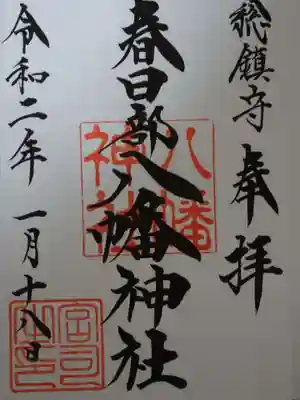 總鎮守 奉拝
春日部八幡神社
八幡神社
令和二年 一月十八日